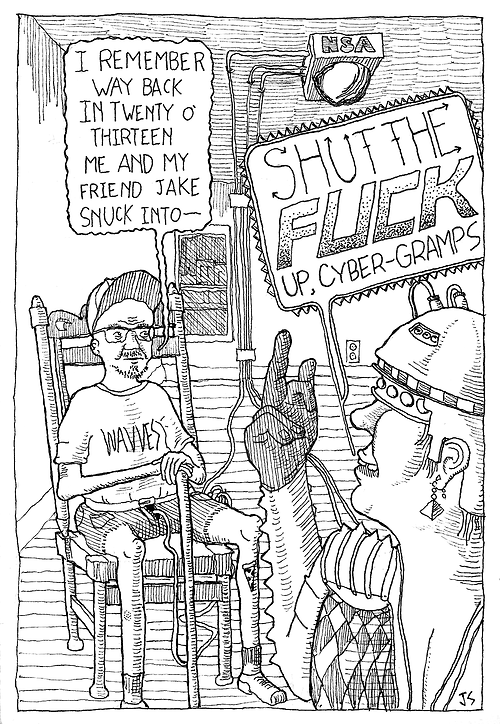 I REMEMBER
WAY BACK
IN TWENTY O'
THIRTEEN
ME AND MY
FRIEND JAKE
SNUCK INTO—
NSA
SHUT THE
FUCK
UP, CYBER-GRAMPS
WAVVES
JS